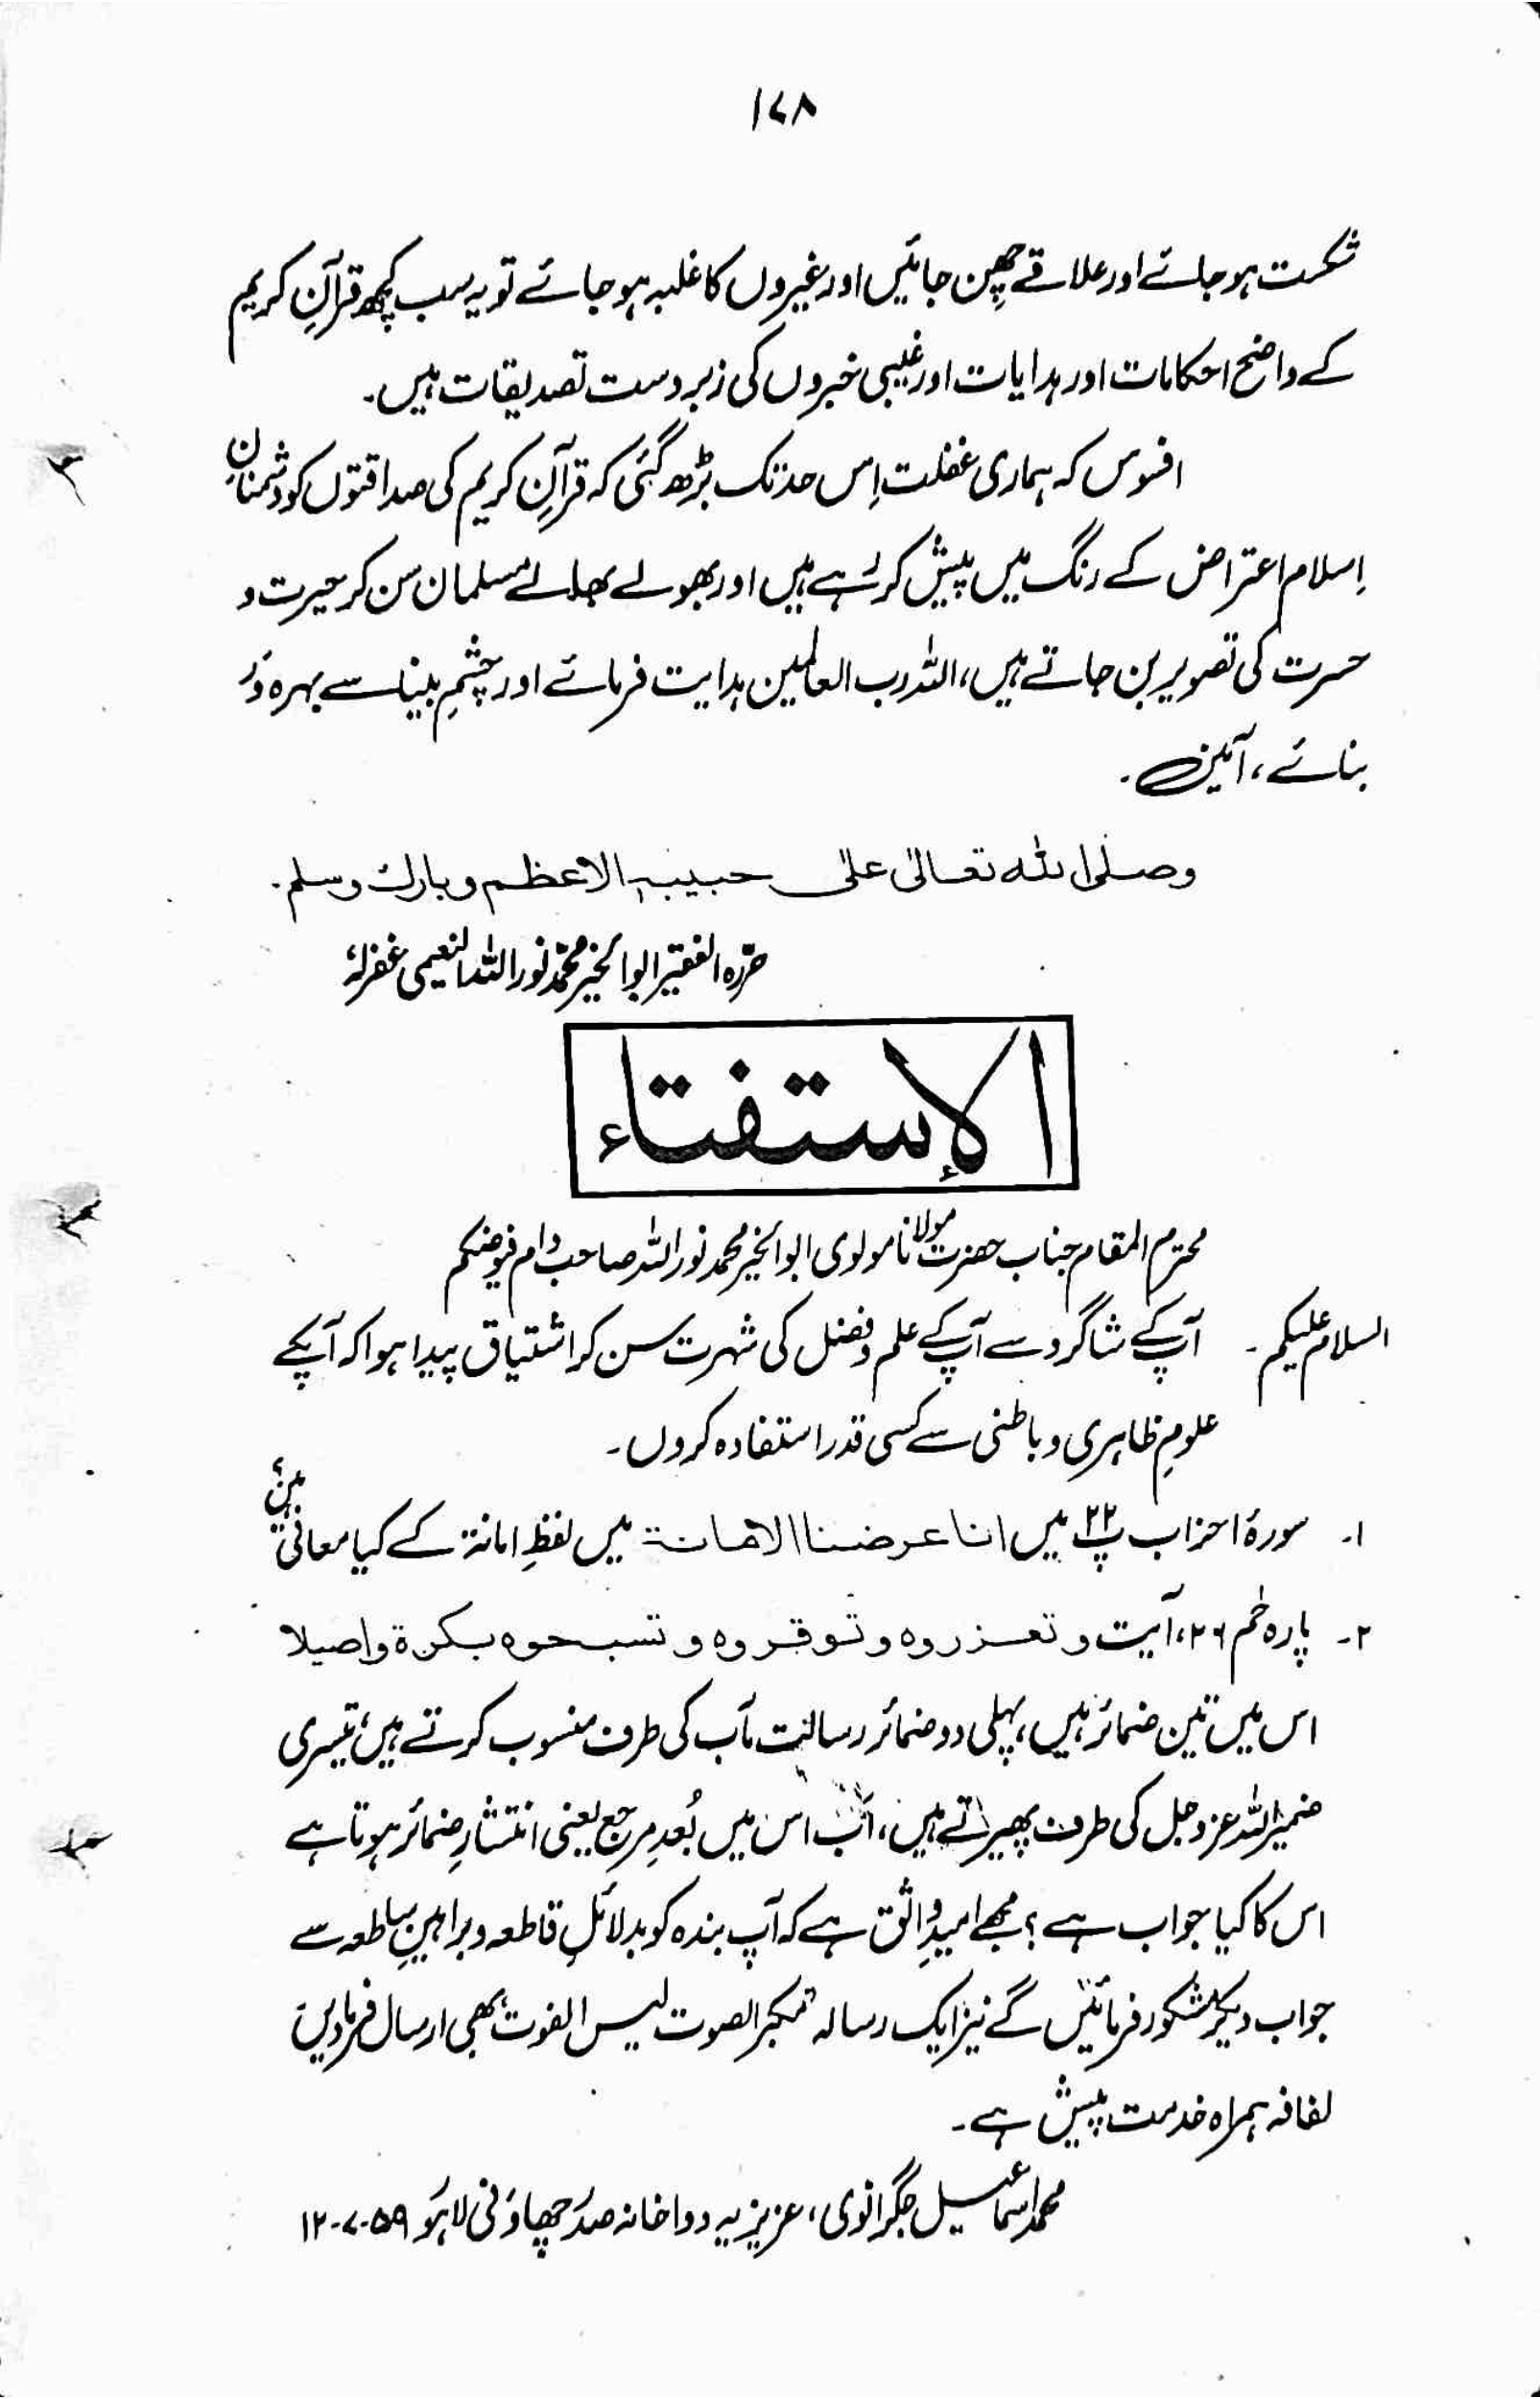 ۱۷۸
شکست ہو جائے اور علاقے چھِن جائیں اور غیروں کا غلبہ ہو جائے تو یہ سب کچھ قرآنِ کریم
کے واضح احکامات اور ہدایات اور غیبی خبروں کی زبردست تصدیقات ہیں۔
افسوس کہ ہماری غفلت اِس حد تک بڑھ گئی کہ قرآنِ کریم کی صداقتوں کو دشمنانِ
اِسلام اعتراض کے رنگ میں پیش کر رہے ہیں اور بھولے بھالے مسلمان سن کر حیرت و
حسرت کی تصویر بن جاتے ہیں، اللہ رب العالمین ہدایت فرمائے اور چشمِ بینا سے بہرہ وَر
بنائے، آمین۔
وصلى الله تعالىٰ علىٰ حبيبه الاعظم وبارك وسلم۔
حرّرہ الفقیر ابو الخیر محمّد نور اللہ النعیمی غفرلہٗ
الإستفتاء
محترم المقام جناب حضرت مولانا مولوی ابو الخیر محمد نور اللہ صاحب دام فیوضکم
السلام علیکم۔ آپ کے شاگرد سے آپ کے علم و فضل کی شہرت سن کر اشتیاق پیدا ہوا کہ آپکے
علومِ ظاہری و باطنی سے کسی قدر استفادہ کروں۔
۱۔ سورۂ احزاب پ۲۲ میں انا عرضنا الامانة میں لفظِ امانۃ کے کیا معانی ہیں؟
۲۔ پارہ حٰم ۲۶، آیت و تعزروه و توقروه و تسبحوه بكرة واصيلا
اس میں تین ضمائر ہیں، پہلی دو ضمائر رسالت مآب کی طرف منسوب کرتے ہیں، تیسری
ضمیر اللہ عزوجل کی طرف پھیرتے ہیں، اب اس میں بُعدِ مرجع یعنی انتشارِ ضمائر ہوتا ہے
اس کا کیا جواب ہے؟ مجھے امیدِ واثق ہے کہ آپ بندہ کو بدلائلِ قاطعہ و براہینِ ساطعہ سے
جواب دیکر مشکور فرمائیں گے نیز ایک رسالہ "مکبر الصوت لیس الفوت" بھی ارسال فرما دیں
لفافہ ہمراہ خدمت پیش ہے۔
محمد اسماعیل جگرانوی، عزیزیہ دواخانہ صدر چھاؤنی لاہور ۵۹-۷-۱۲